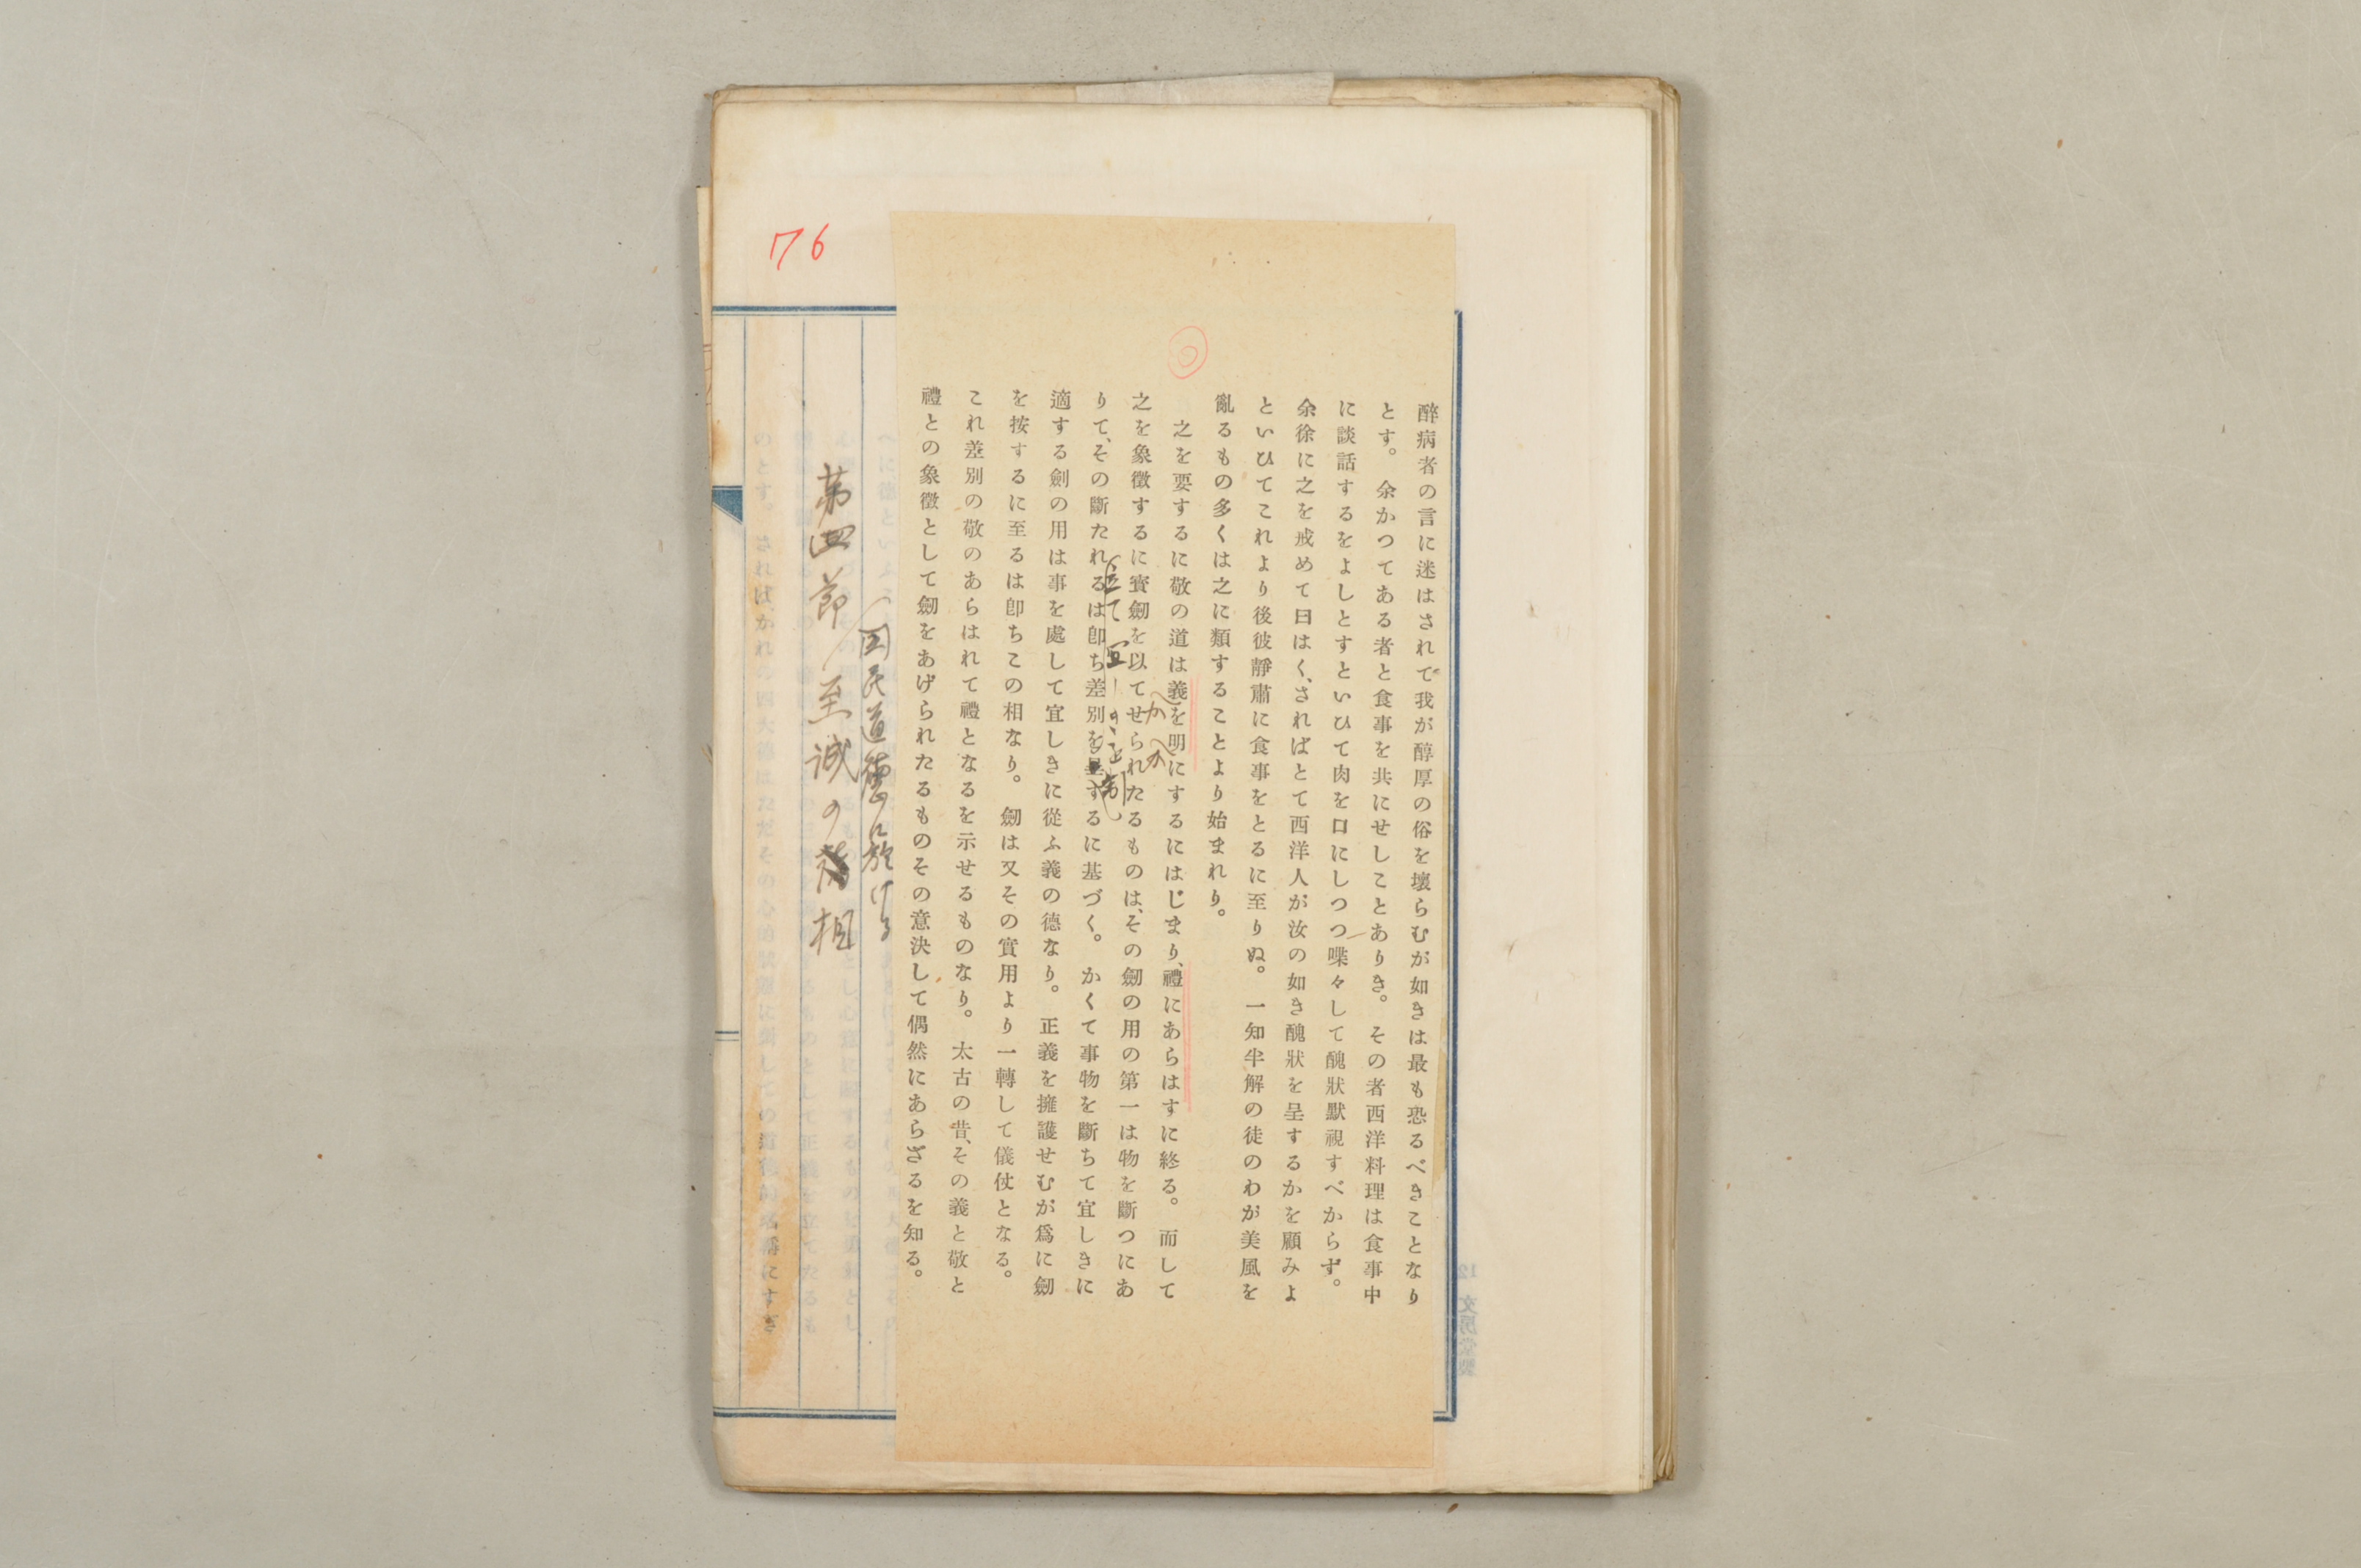 76
醉病者の言に迷はされて我が醇厚の俗を壞らむが如きは最も恐るべきことなり
とす。余かつてある者と食事を共にせしことありき。その者西洋料理は食事中
に談話するをよしとすといひて肉を口にしつつ喋々して醜狀默視すべからず。
余徐に之を戒めて曰はく、さればとて西洋人が汝の如き醜狀を呈するかを顧みよ
といひてこれより後彼靜肅に食事をとるに至りぬ。一知半解の徒のわが美風を
亂るもの多くは之に類することより始まれり。
之を要するに敬の道は義を明にするにはじまり、禮にあらはすに終る。而して
之を象徵するに寳劒を以てせられたるものは、その劒の用の第一は物を斷つにあ
りて、その斷たれるは卽ち差別を呈するに基づく。かくて事物を斷ちて宜しきに
適する劍の用は事を處して宜しきに從ふ義の德なり。正義を擁護せむが爲に劒
を按するに至るは卽ちこの相なり。劒は又その實用より一轉して儀仗となる。
これ差別の敬のあらはれて禮となるを示せるものなり。太古の昔、その義と敬と
禮との象徵として劒をあげられたるものその意決して偶然にあらざるを知る。
國民道德に於ける
第四節 至誠の相
12 文房堂製